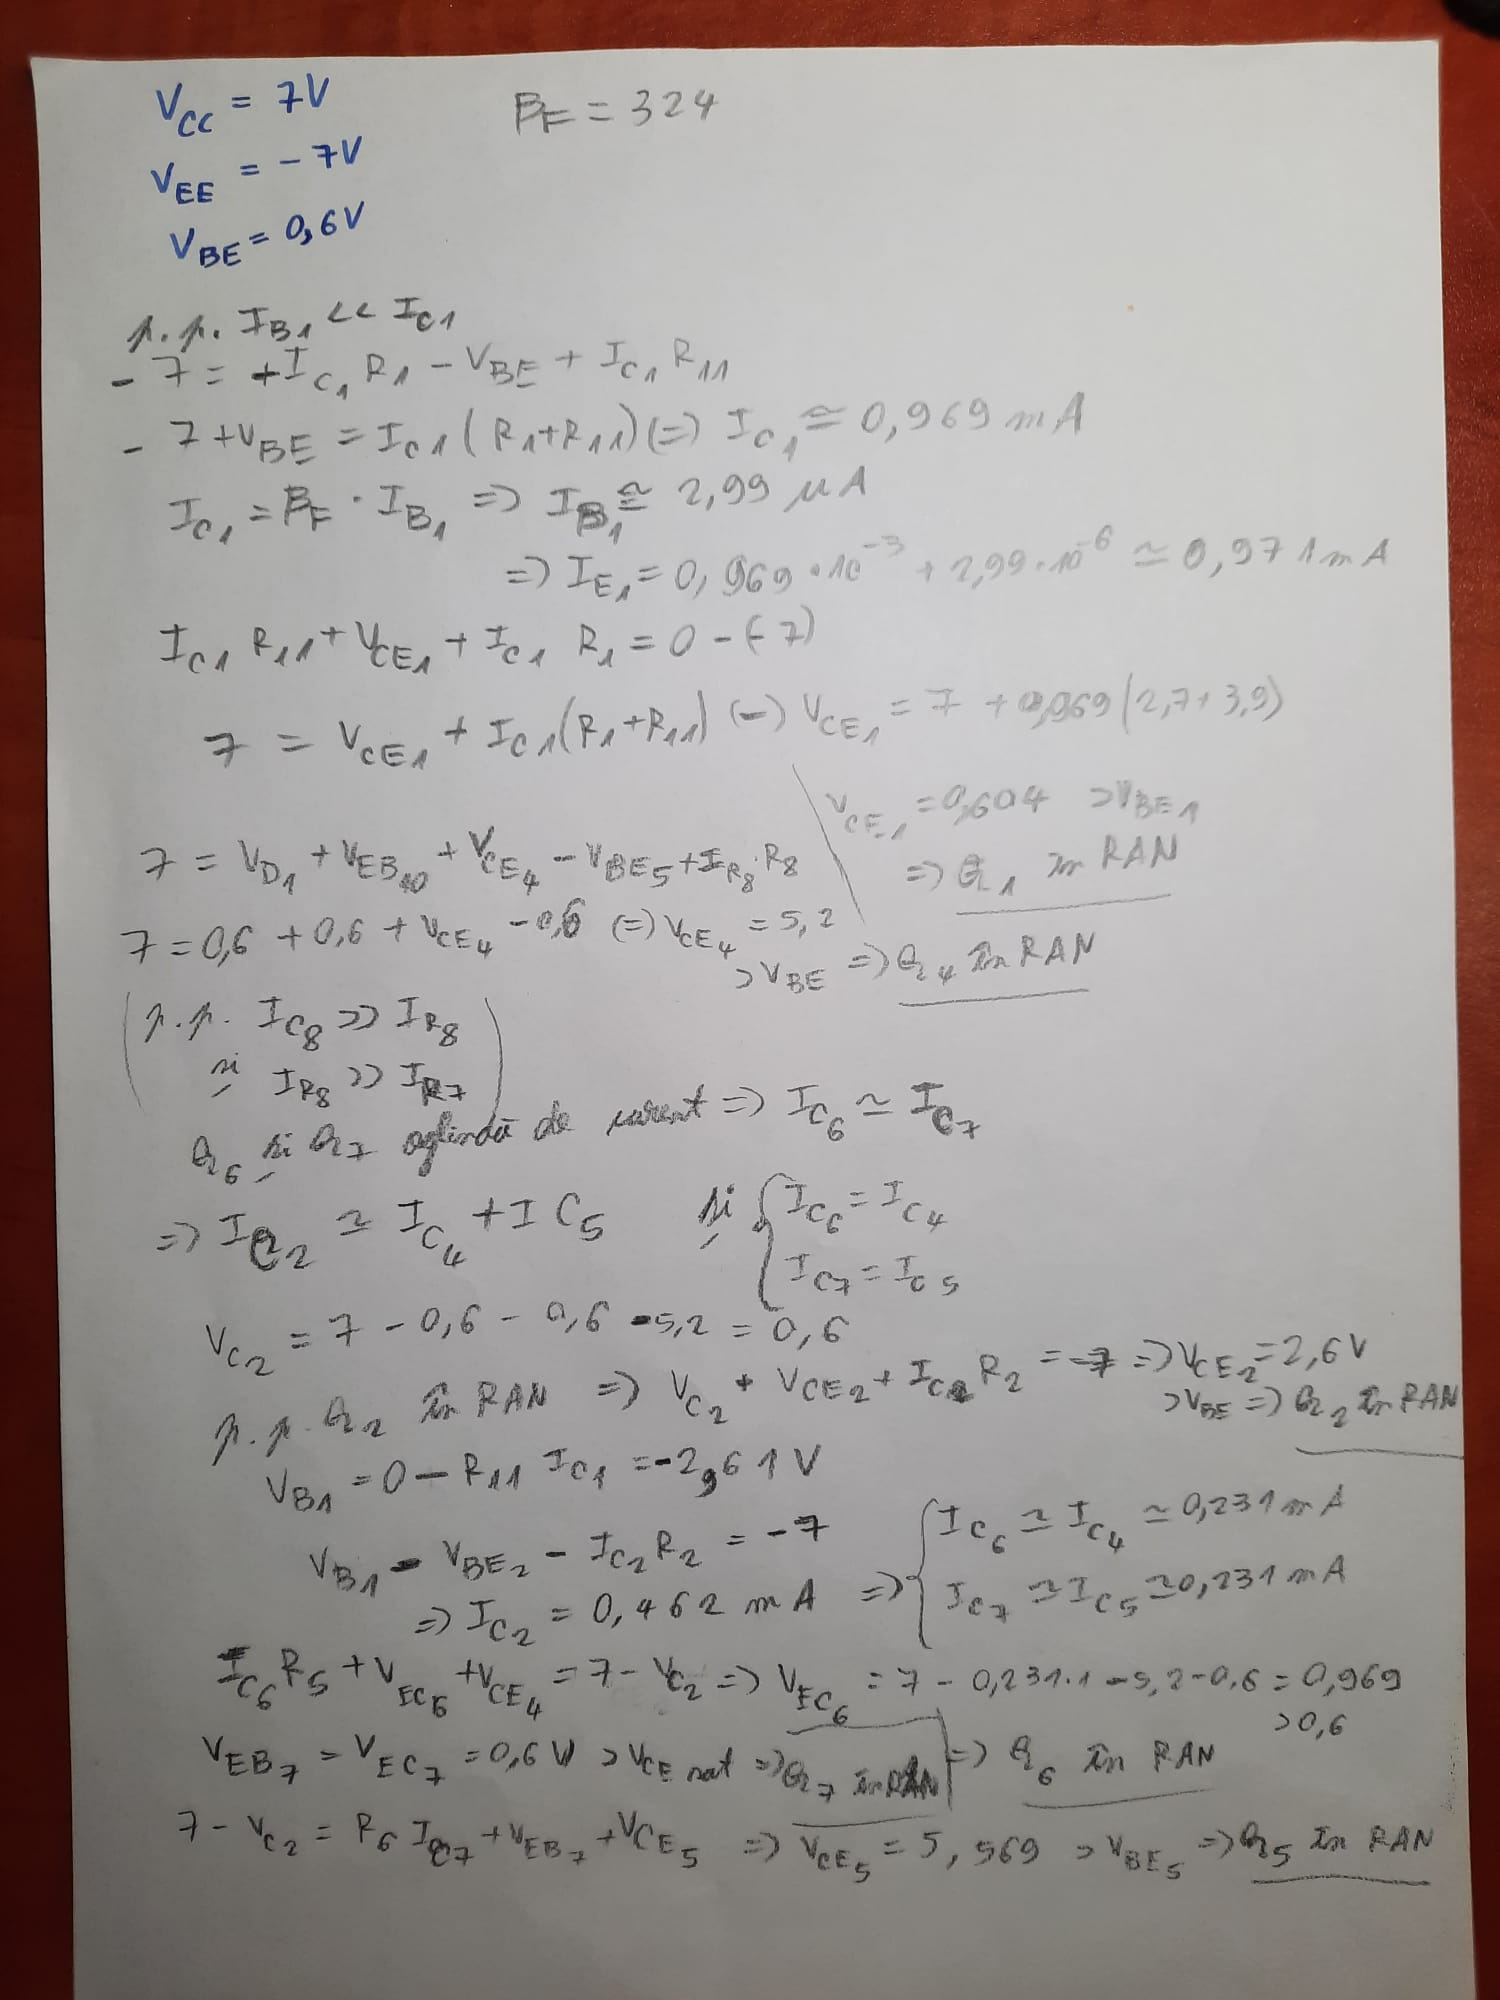 V_CC = 7V
β_F = 324
V_EE = -7V
V_BE = 0,6V
p.p. I_B1 << I_C1
-7 = +I_C1 R_1 - V_BE + I_C1 R_11
-7 + V_BE = I_C1 (R_1 + R_11) (=) I_C1 ≃ 0,969 mA
I_C1 = β_F · I_B1 => I_B1 ≅ 2,99 μA
=> I_E1 = 0,969 · 10^-3 + 2,99 · 10^-6 ≃ 0,971 mA
I_C1 R_11 + V_CE1 + I_C1 R_1 = 0 - (-7)
7 = V_CE1 + I_C1 (R_1 + R_11) (=) V_CE1 = 7 + 0,969 (2,7 + 3,9)
V_CE1 = 0,604 > V_BE1
=> Q_1 în RAN
7 = V_D1 + V_EB10 + V_CE4 - V_BE5 + I_R8 · R_8
7 = 0,6 + 0,6 + V_CE4 - 0,6 (=) V_CE4 = 5,2
> V_BE => Q_4 în RAN
(p.p. I_C8 >> I_R8
și I_R8 >> I_R7)
Q_6 și Q_7 oglindă de curent => I_C6 ≃ I_C7
=> I_C2 ≃ I_C4 + I_C5 și { I_C6 = I_C4
I_C7 = I_C5
V_C2 = 7 - 0,6 - 0,6 - 5,2 = 0,6
p.p. Q_2 în RAN => V_C2 + V_CE2 + I_C2 R_2 = -7 => V_CE2 = 2,6 V
> V_BE => Q_2 în RAN
V_B1 = 0 - R_11 I_C1 = -2,61 V
V_B1 - V_BE2 - I_C2 R_2 = -7
=> I_C2 = 0,462 mA => { I_C6 ≃ I_C4 ≃ 0,231 mA
I_C7 ≃ I_C5 ≃ 0,231 mA
I_C6 R_5 + V_EC6 + V_CE4 = 7 - V_C2 => V_EC6 = 7 - 0,231·1 - 5,2 - 0,6 = 0,969
> 0,6
V_EB7 = V_EC7 = 0,6 V > V_CE sat => Q_7 în RAN
=> Q_6 în RAN
7 - V_C2 = R_6 I_C7 + V_EB7 + V_CE5 => V_CE5 = 5,569 > V_BE5 => Q_5 în RAN